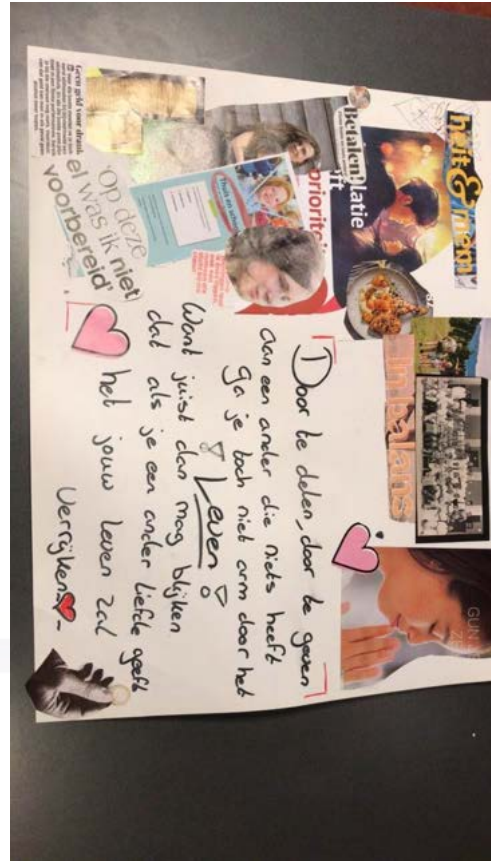 heit & mem
Betalen!
latie
prioritei
in balans
Geen geld voor drank
'Op deze
el was ik niet
voorbereid'
Thuis en school
GUN
Door te delen, door te geven
aan een ander die niets heeft
ga je toch niet arm door het
Leven!
Want juist dan mag blijken
dat als je een ander liefde geeft
het jouw leven zal
Verrijken